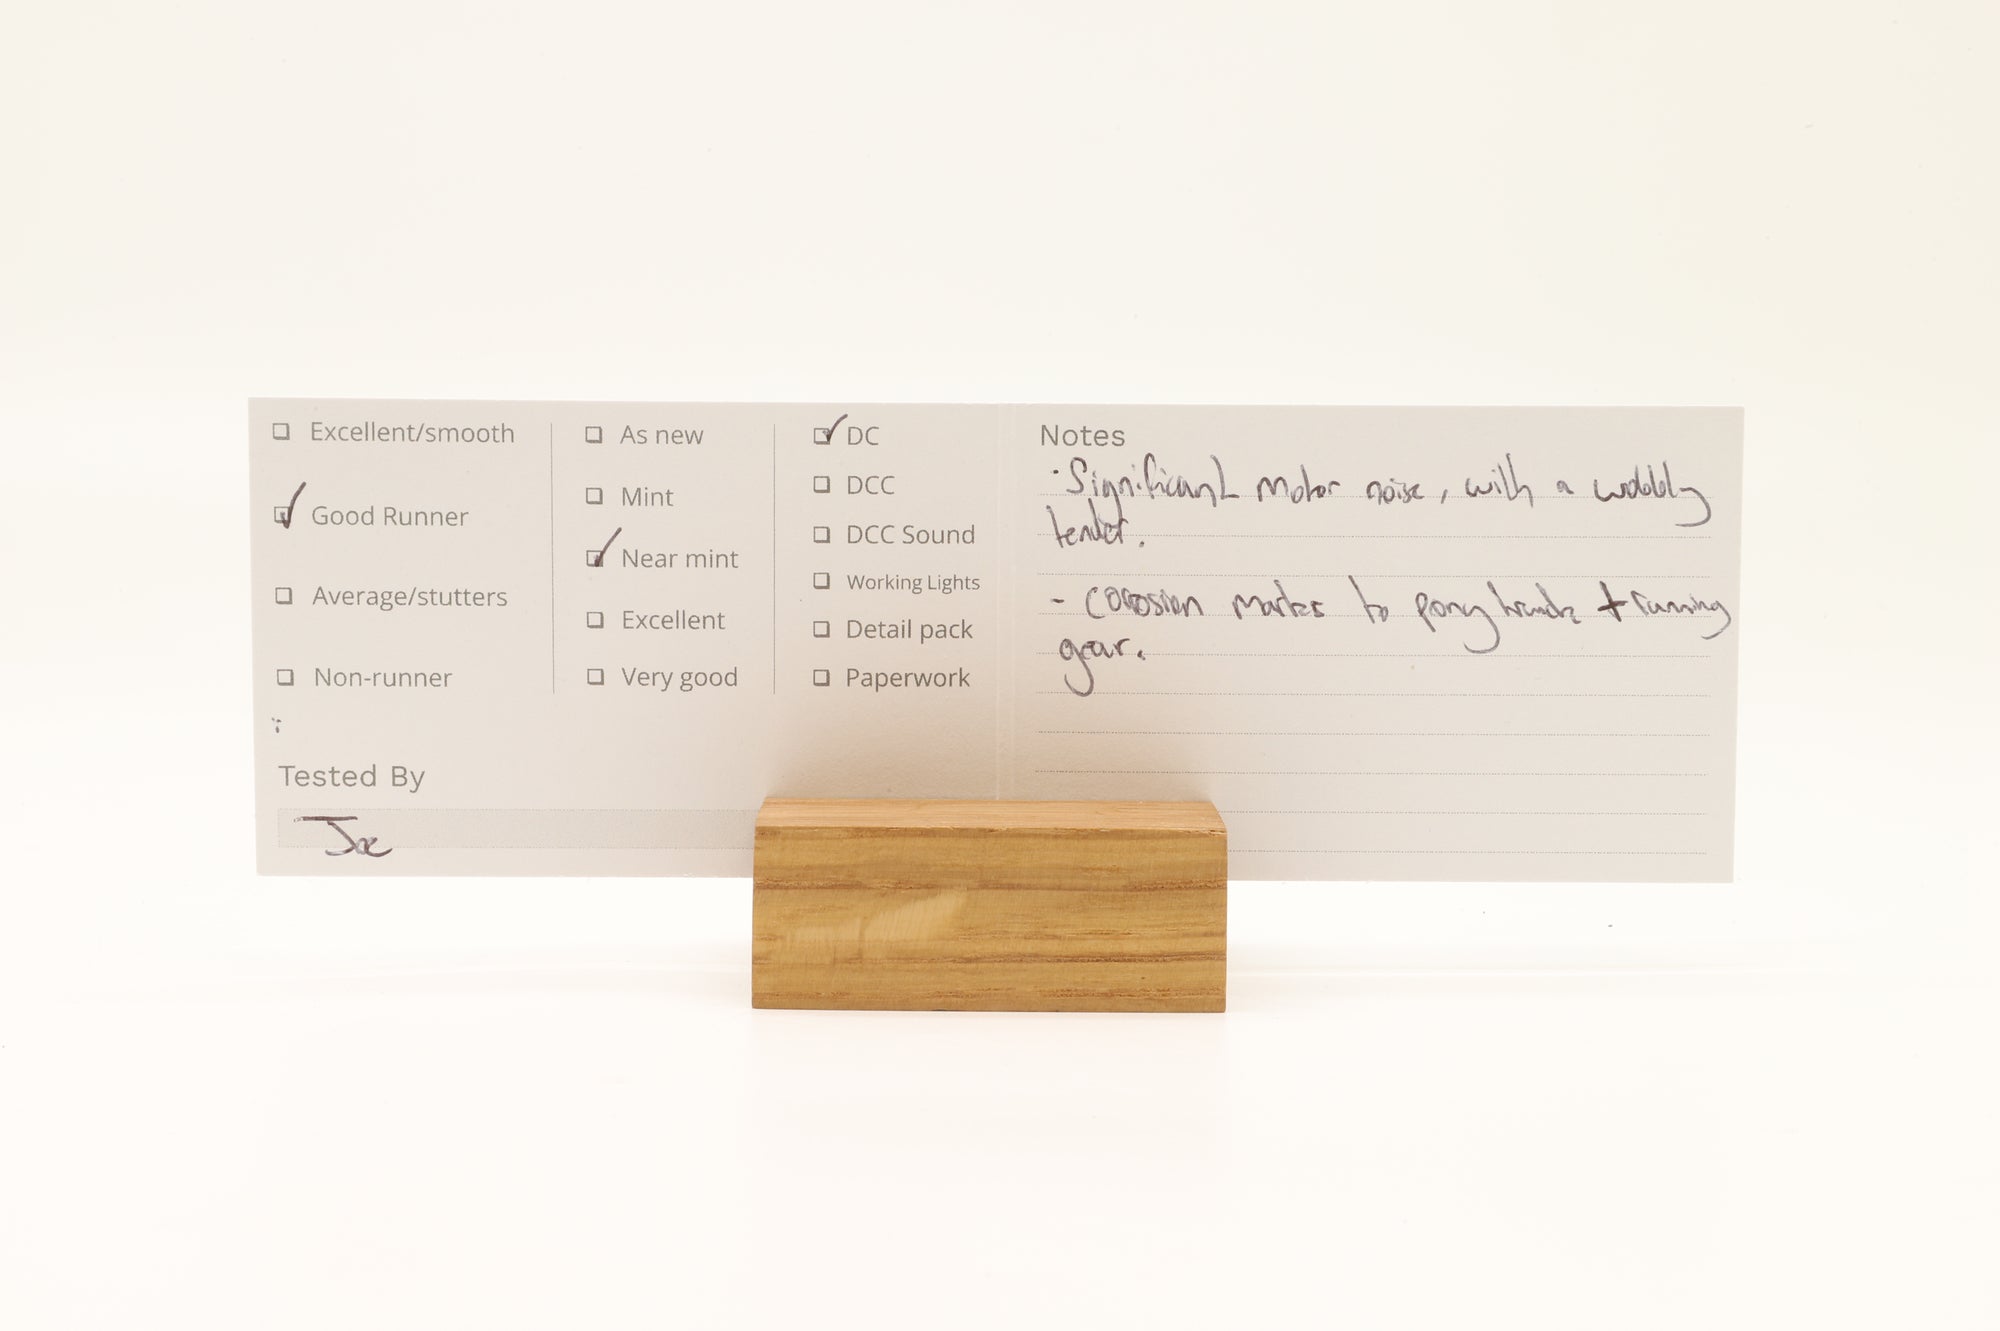 ☐ Excellent/smooth
☑ Good Runner
☐ Average/stutters
☐ Non-runner
☐ As new
☐ Mint
☑ Near mint
☐ Excellent
☐ Very good
☑ DC
☐ DCC
☐ DCC Sound
☐ Working Lights
☐ Detail pack
☐ Paperwork
Tested By
Joe
Notes
· Significant motor noise, with a wobbly
tender.
- Corrosion marks to pony truck + running
gear.